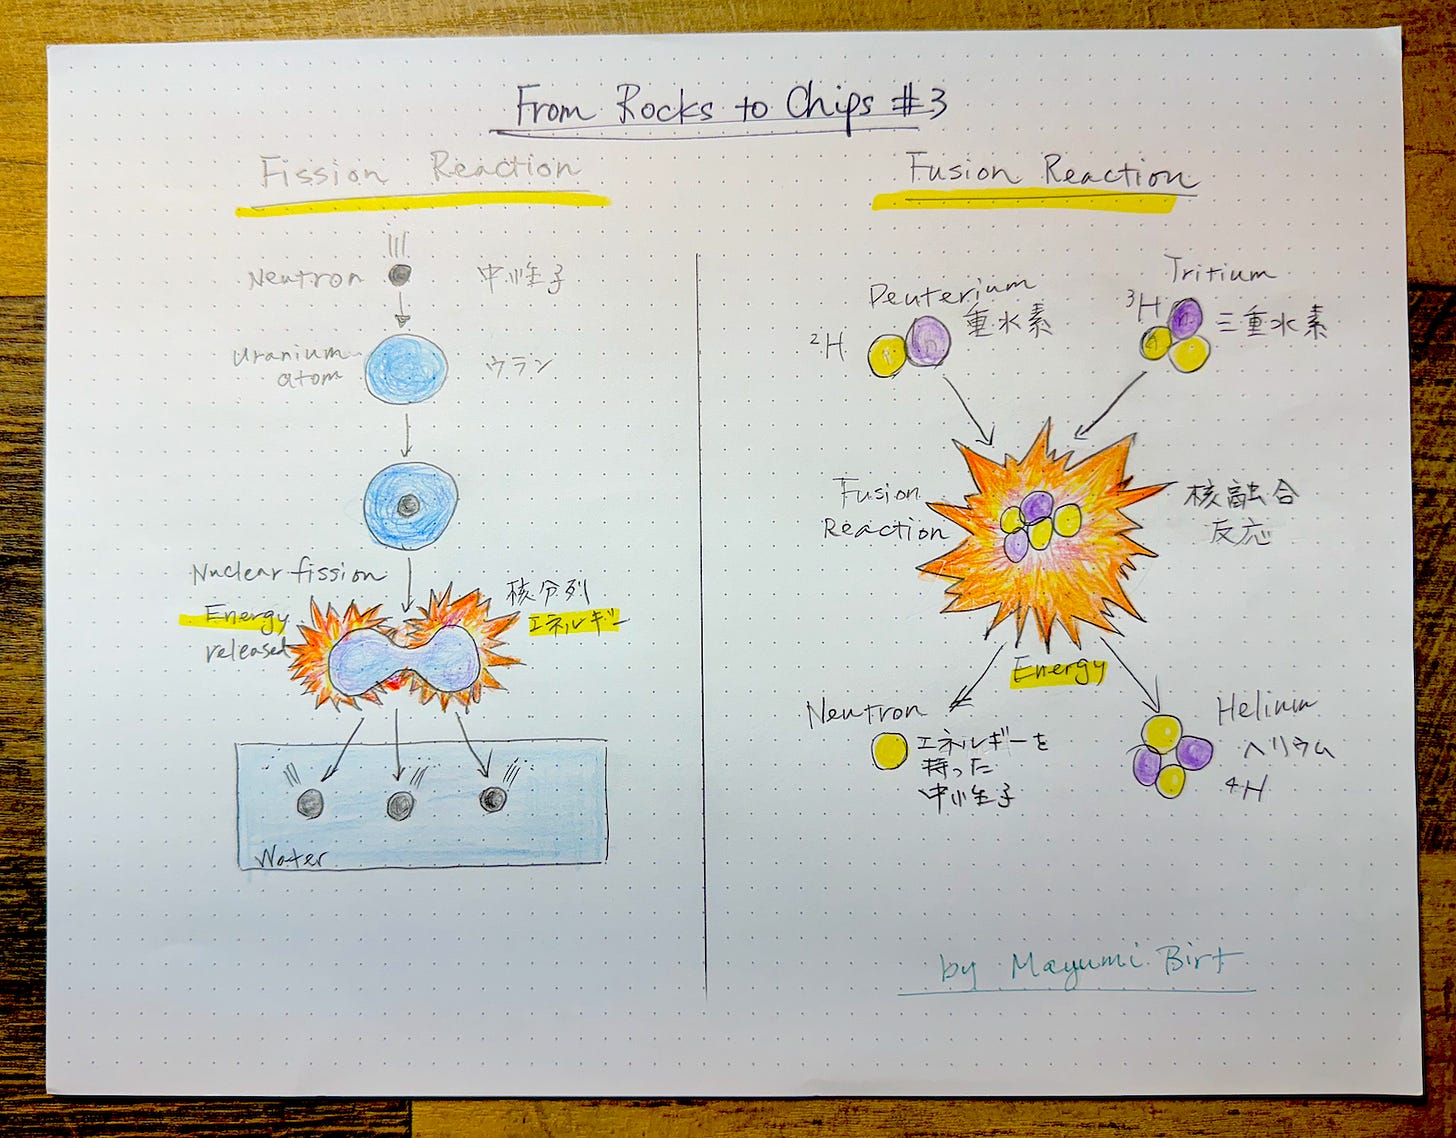 From Rocks to Chips #3
Fission Reaction
Neutron
中性子
Uranium
atom
ウラン
Nuclear fission
Energy
released
核分列
エネルギー
Water
Fusion Reaction
Deuterium
重水素
²H
Tritium
³H
三重水素
n
Fusion
Reaction
核融合
反応
Energy
Neutron
エネルギーを
持った
中性子
Helium
ヘリウム
⁴H
by Mayumi Birt